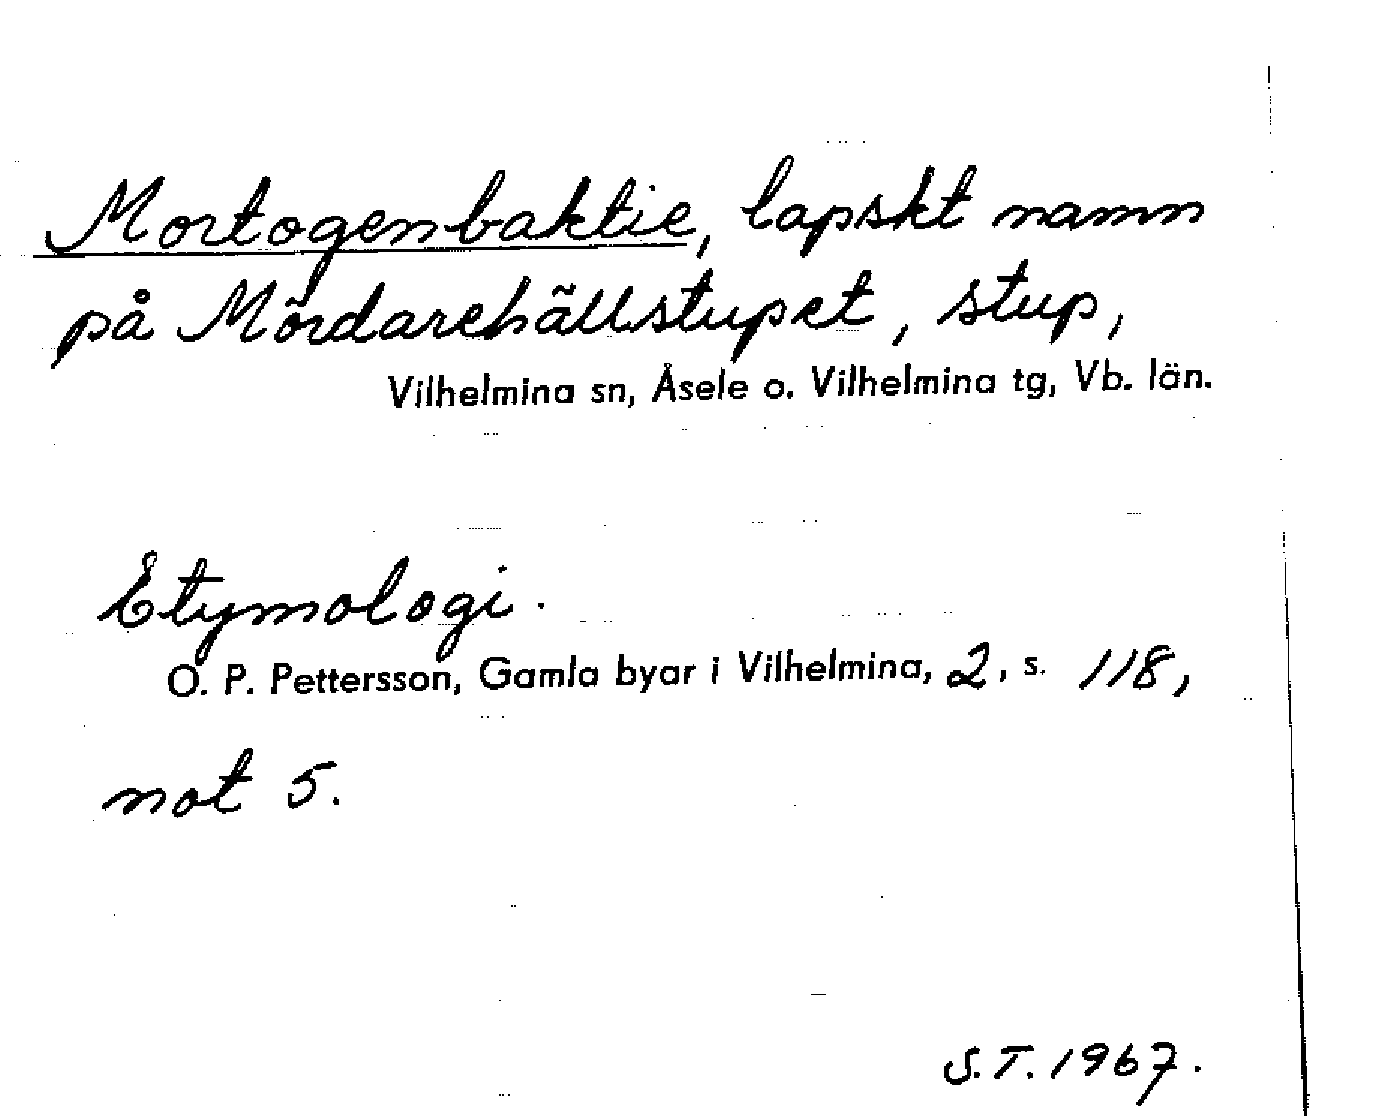 Mortogenbaktie, lapskt namn
på Mördarehällstupet, stup,
Vilhelmina sn, Åsele o. Vilhelmina tg, Vb. län.
Etymologi.
O. P. Pettersson, Gamla byar i Vilhelmina, 2, s. 118,
not 5.
S.T. 1967.